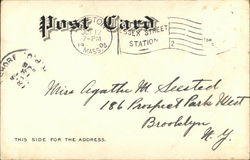 Post Card
7-PM
MASS.
ESSEX STREET
STATION
2
Miss Agathe M.
186 Prospect Park West
Brooklyn
N.Y.
THIS SIDE FOR THE ADDRESS.